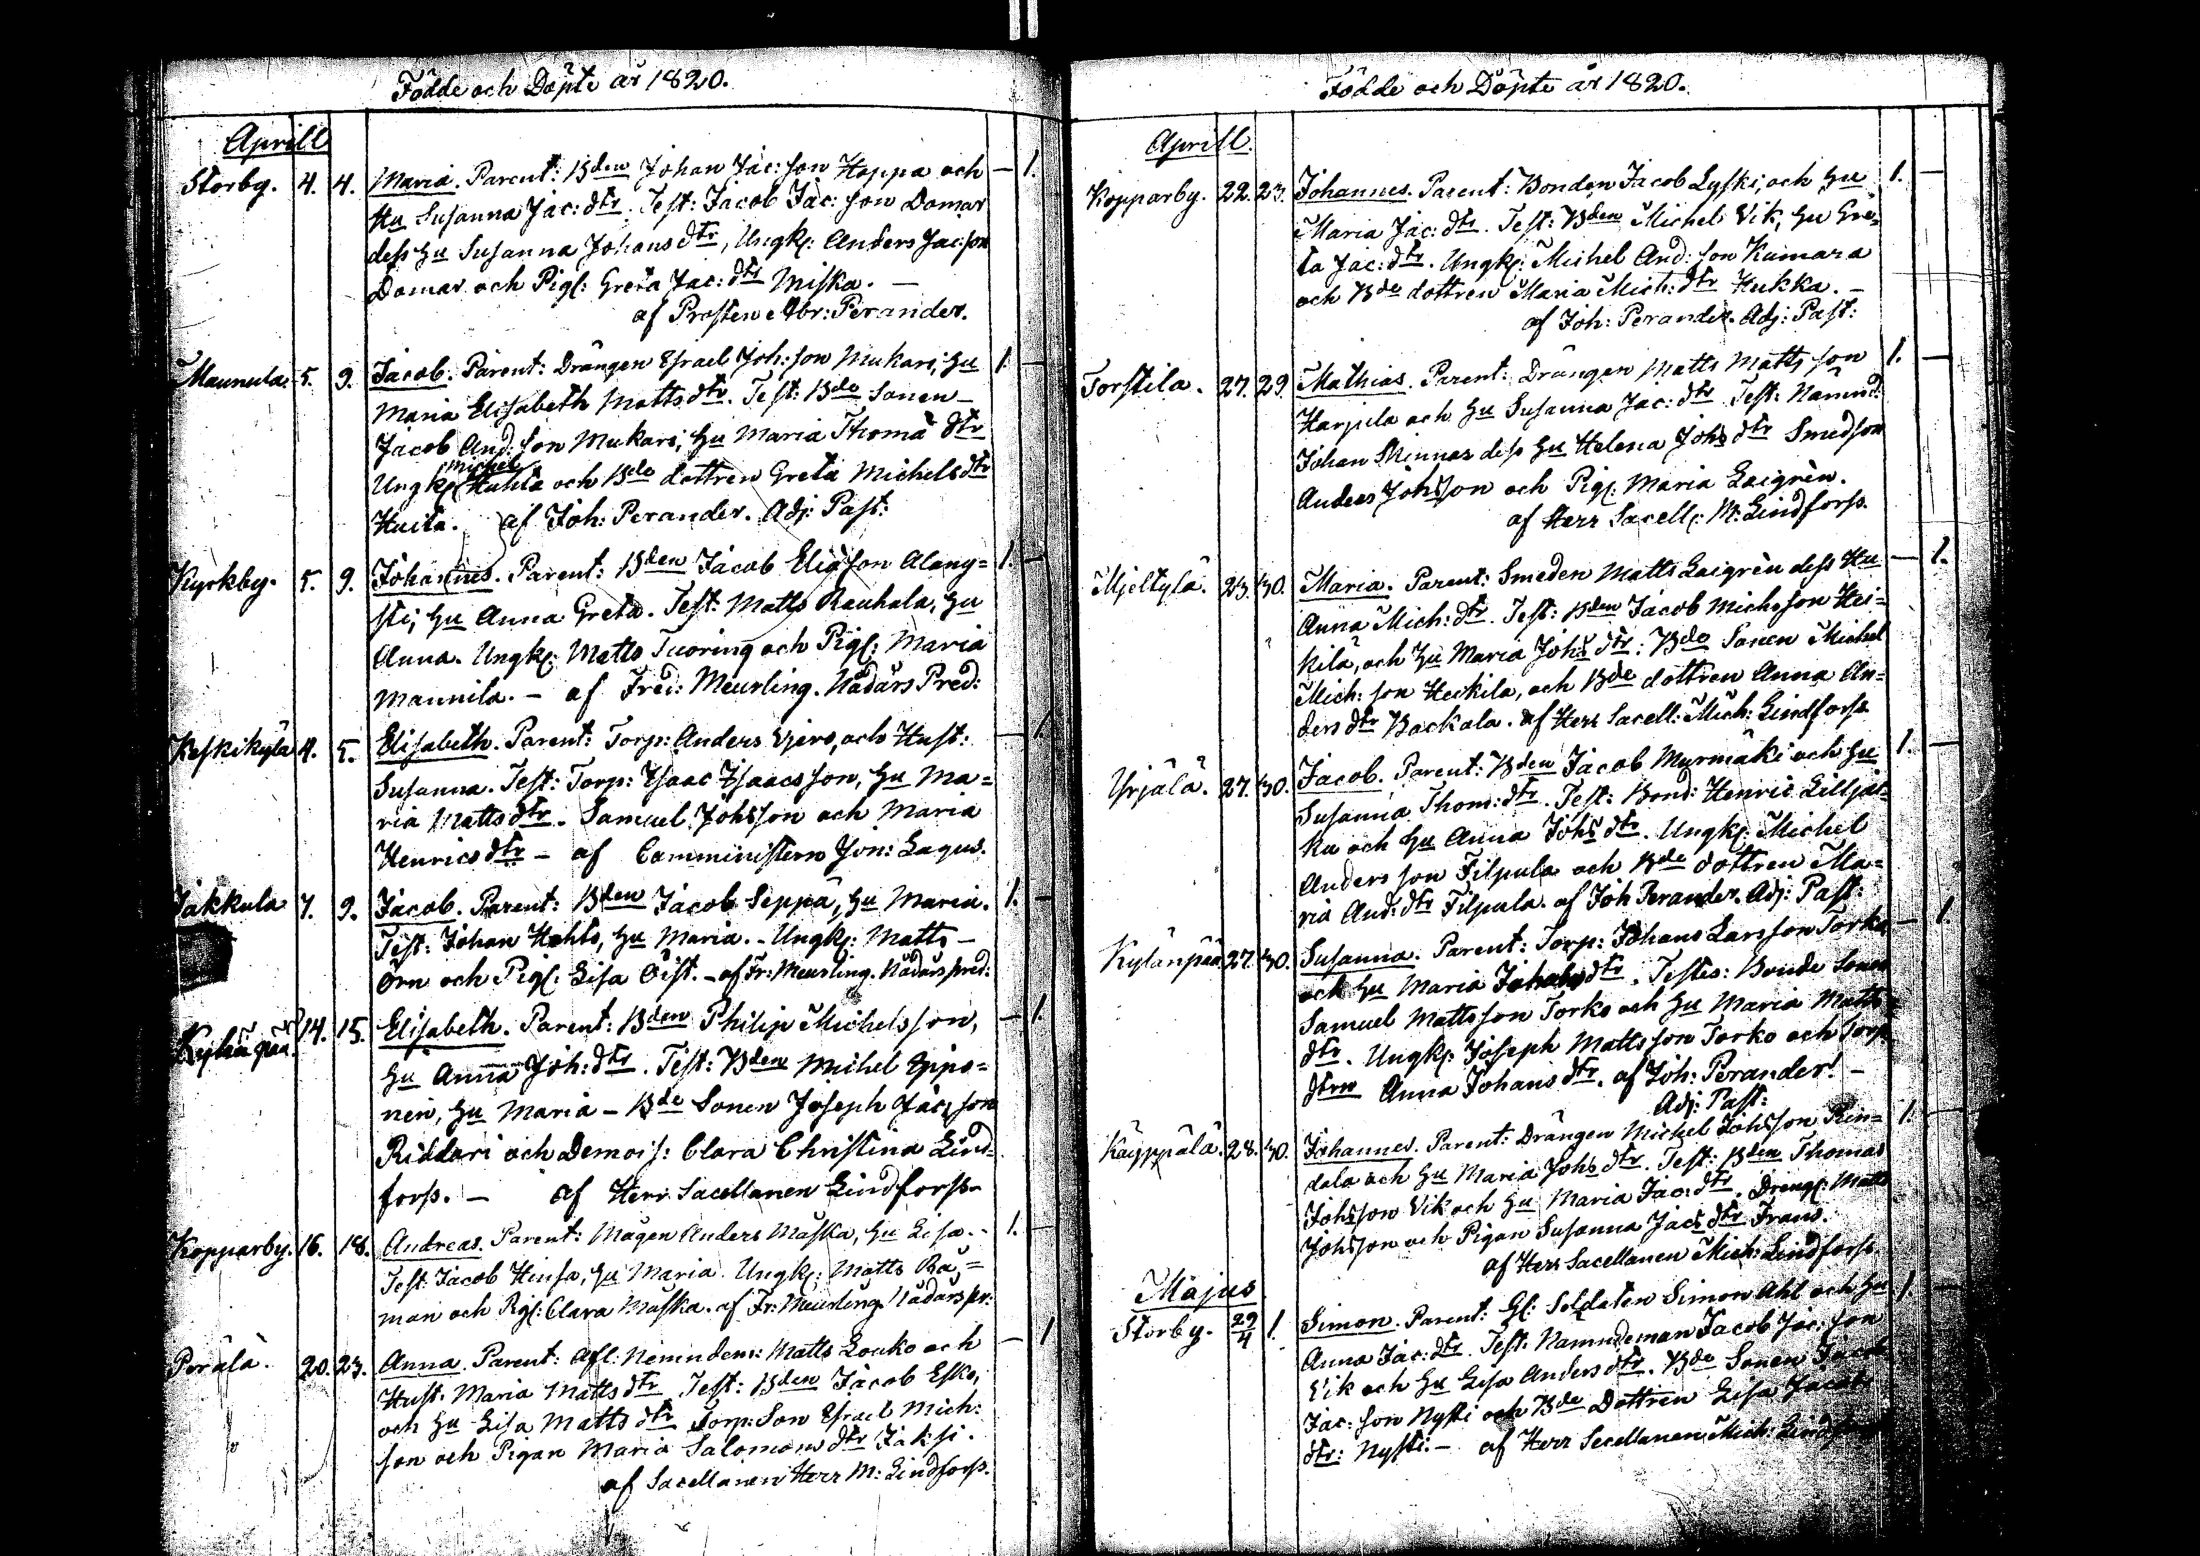 Födde och Döpte år 1820.
Aprill
Storby. 4. 4. Maria. Parent: Bden Johan Jac:son Hoppa och — 1.
Hu Susanna Jac:dtr. Test: Jacob Jac:son Domar
dess Hu Susanna Johansdtr, Ungk: Anders Jac:son
Domar och Pig: Greta Jac:dtr Miska. —
af Prosten Abr: Perander.
Maunula. 5. 9. Jacob. Parent: Drängen Esrael Joh:son Mukari, Hu 1. —
Maria Elisabeth Mattsdtr. Test: Bde Sonen
Jacob And:son Mukari; Hu Maria Thomä dtr
Ungk: Michel Huhta och Bde dottren Greta Michelsdtr
Huita. af Joh: Perander. Adj: Past:
Kyrkby. 5. 9. Johannes. Parent: Bden Jacob Eliason Alang= 1. —
sti; Hu Anna Greta. Test: Matts Rauhala, Hu
Anna. Ungk: Matts Tuoring och Pig: Maria
Mannila. — af Fred: Meurling. Nådårs Pred:
Keskikylä 4. 5. Elisabeth. Parent: Torp: Anders Ojero, och Hust: — 1
Susanna. Test: Torp: Isaac Isaacsson, Hu Ma=
ria Mattsdtr. Samuel Johsson och Maria
Henricsdtr — af Comministern Jon: Lagus.
Jakkula 7. 9. Jacob. Parent: Bden Jacob Seppä, Hu Maria. 1. —
Test: Johan Hohto, Hu Maria. — Ungk: Matts —
Örn och Pig: Lisa Öist. — af Fr: Meurling. Nådårspred:
Kylänpää. 14. 15. Elisabeth. Parent: Bden Philip Michelsson, — 1.
Hu Anna Joh:dtr. Test: Bden Michel Eppo=
nen, Hu Maria — Bde Sonen Joseph Jac:son
Riddari och Demois: Clara Christina Lind=
forss. — af Herr Sacellanen Lindforss.
Kopparby. 16. 18. Andreas. Parent: Mågen Anders Maska, Hu Lisa. 1. —
Test: Jacob Hinsa, Hu Maria. Ungk: Matts Rå=
man och Pig: Clara Maska. af Fr: Meurling. Nådårspr:
Perälä. 20. 23. Anna. Parent: Afl: Nämndem: Matts Louko och — 1
Hust. Maria Mattsdtr. Test: Bden Jacob Esko,
och Hu Lisa Mattsdtr Torp: Son Esrael Mich:
son och Pigan Maria Salomonsdtr Jaksi.
af Sacellanen Herr M: Lindforss.
Födde och Döpte år 1820.
Aprill.
Kopparby. 22. 23. Johannes. Parent: Bonden Jacob Lyski, och Hu 1. —
Maria Jac:dtr. Test: Bden Michel Vik, Hu Gre=
ta Jac:dtr. Ungk: Michel And:son Kamara
och Bde dottren Maria Mich:dtr Hukka. —
af Joh: Perander. Adj: Past:
Torstila. 27. 29. Mathias. Parent: Drängen Matts Mattsson 1. —
Harpila och Hu Susanna Jac:dtr. Test: Nämnd:
Johan Skinnar dess Hu Helena Johs dtr Smedson
Anders Johsson och Pig: Maria Laigrèn.
af Herr Sacell: M: Lindforss.
Mjeltylä. 23. 30. Maria. Parent: Smeden Matts Laigrèn dess Hu — 1.
Anna Mich:dtr. Test: Bden Jacob Michsson Hei=
kilä, och Hu Maria Johs dtr: Bde Sonen Michel
Mich:son Heikila, och Bde dottren Anna An=
ders dtr Backala. af Herr Sacell: Mich: Lindforss
Yrjälä. 27. 30. Jacob. Parent: Bden Jacob Myrmäki och Hu 1. —
Susanna Thom:dtr. Test: Bond: Henric Lilljas=
ka och Hu Anna Johs dtr. Ungk: Michel
Andersson Filpula och Bde dottren Ma=
ria And:dtr Filpula. af Joh Perander. Adj: Past:
Kylänpää 27. 30. Susanna. Parent: Torp: Johans Larsson Torka — 1.
och Hu Maria Johansdtr. Testes: Bonde Sonen
Samuel Mattsson Torko och Hu Maria Matts
dtr. Ungk: Joseph Mattsson Torko och Torp
dtrn Anna Johansdtr. af Joh: Perander! —
Adj: Past:
Käyppälä. 28. 30. Johannes. Parent: Drängen Michel Johsson Rin= 1. —
dala och Hu Maria Johs dtr. Test: Bden Thomas
Johsson Vik och Hu Maria Jac:dtr. Dräng: Matts
Johsson och Pigan Susanna Jacs dtr Frans.
af Herr Sacellanen Mich: Lindforss.
Majus
Storby. 29/4 1. Simon. Parent: Gl: Soldaten Simon Ahl och Hu 1. —
Anna Jac:dtr. Test. Nämndeman Jacob Jac:son
Vik och Hu Lisa Andersdtr. Bde Sonen Jacob
Jac:son Nysti och Bde Dottren Lisa Jacobs
dtr: Nysti. — af Herr Sacellanen Mich: Lindforss